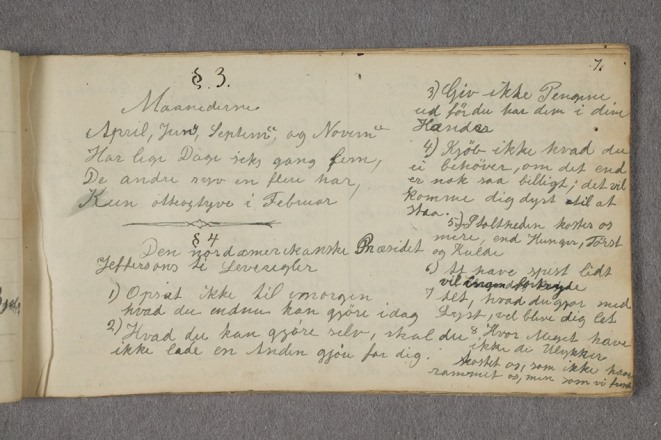 7.
§ 3.
Maanederne
April, Juni, Septem⸗ og Novem⸗
Har lige Dage seks gang fem,
De andre syv en flere har,
Kun otteogtyve i Februar
§ 4
Den nordamerikanske Præsident
Jeffersons ti Leveregler
1) Opsæt ikke til imorgen
hvad du endnu kan gjöre idag
2) Hvad du kan gjöre selv, skal du
ikke lade en Anden gjöre for dig.
3) Giv ikke Pengene
ud för du har dem i dine
Hænder
4) Kjöb ikke hvad du
ei behöver, om det end
er nok saa billigt; det vil
komme dig dyrt til at
staa.
5) Stoltheden koster os
mere, end Hunger, Törst
og Kulde
6) At have spist lidt
vil ingen fortryde
7 Alt, hvad du gjör med
Lyst, vil blive dig let
8 Hvor Meget have
ikke de Ulykker
kostet os, som ikke have
rammet os, men som vi